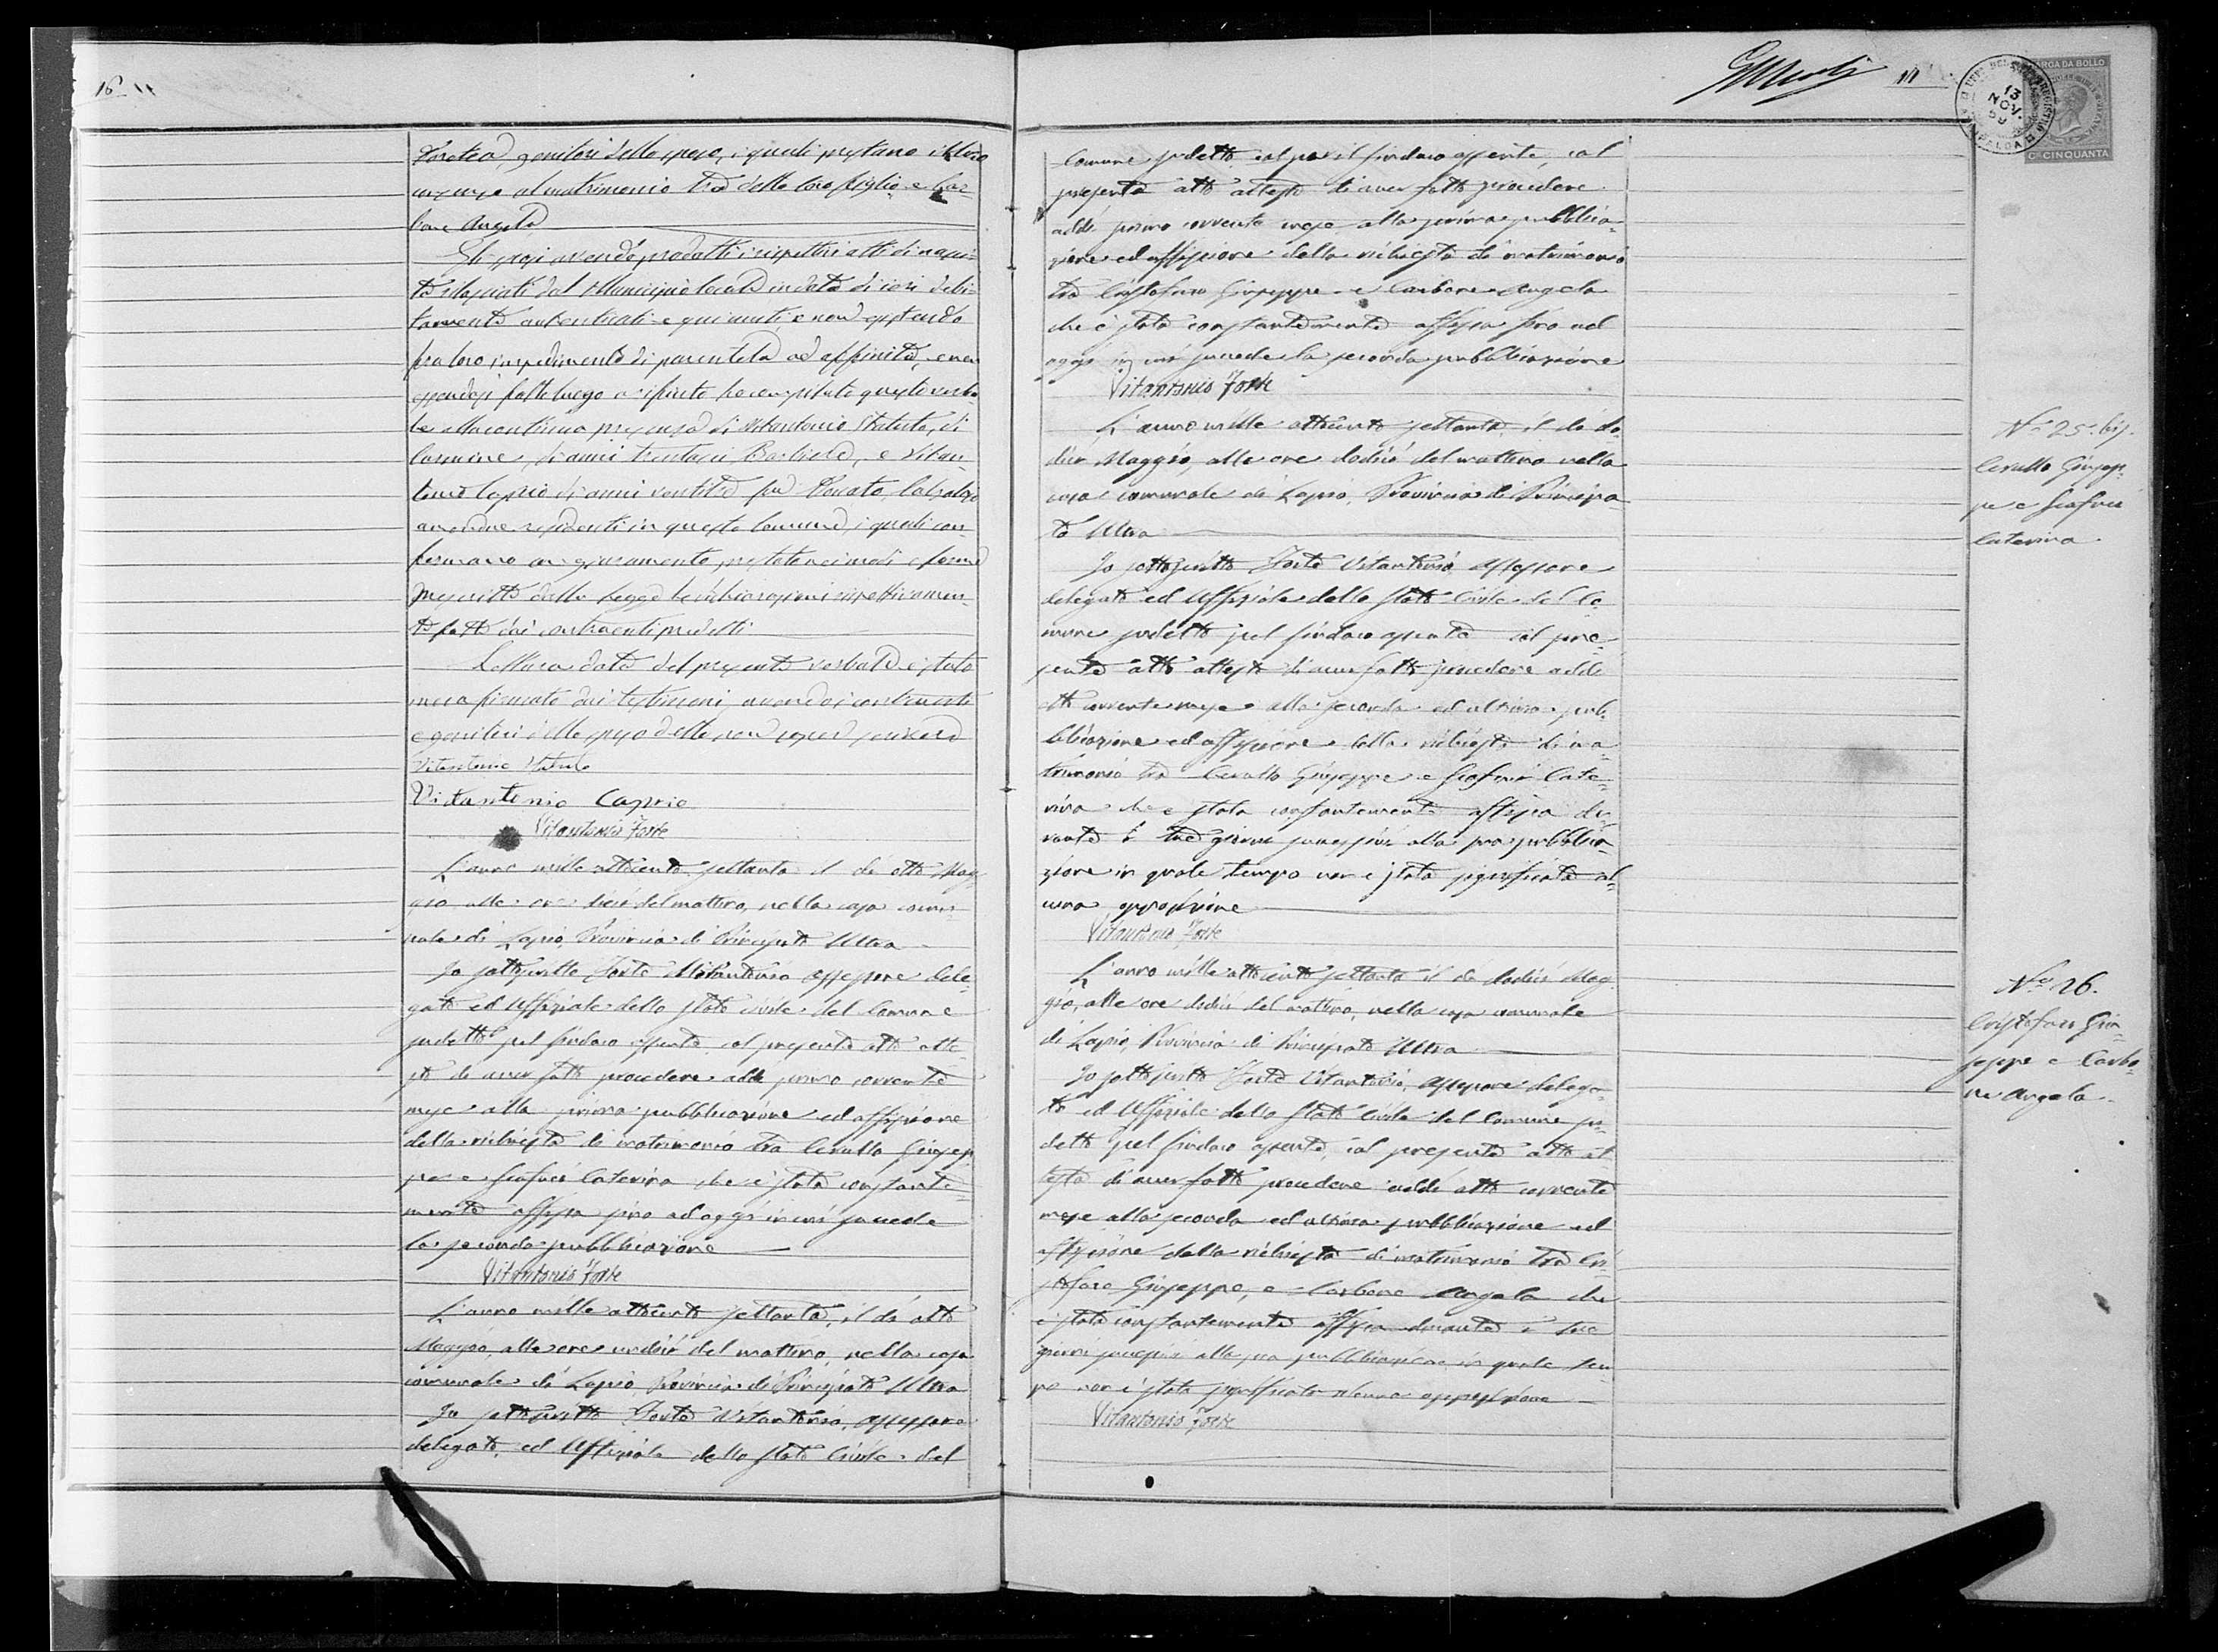 16
genitori dello sposo, i quali prestano il loro
assenso al matrimonio tra detto loro figlio e Car-
bone Angela
Gli sposi avendo prodotti i rispettivi atti di nasci-
ta rilasciati dal Municipio locale in data di ieri debi-
tamente autenticati e e non esistendo
fra loro impedimento di parentela od affinità, e non
essendosi fatto luogo a rifiuto ho compilato questo verba-
le alla continua presenza di Vitantonio Statuto, di
Carmine, di anni trentasei, e Vitan-
tonio Caprio di anni ventitre fu Donato, Calzolaio
amendue residenti in questo Comune, i quali con-
fermano con giuramento, prestato nei modi e forme
prescritte dalla legge le dichiarazioni rispettivamen-
te fatte dai contraenti predetti
Lettura data del presente verbale è stato
firmato dai testimoni, avendo i contraenti
e genitori dello sposo detto non saper scrivere
Vitantonio Statuto
Vitantonio Caprio
Vitantonio Forte
L'anno mille ottocento settanta il dì otto Mag-
gio alle ore dieci del mattino, nella casa comu-
nale di Lapio, Provincia di Principato Ultra
Io sottoscritto Forte Vitantonio assessore dele-
gato ed Uffiziale dello Stato Civile del Comune
sudetto pel Sindaco assente, col presente atto atte-
sto di aver fatto procedere addì primo corrente
mese alla prima pubblicazione ed affissione
della richiesta di matrimonio tra Cerullo Giusep-
pe e Scafuri Caterina che è stata constante-
mente affissa sino ad oggi in cui succede
la seconda pubblicazione
Vitantonio Forte
L'anno mille ottocento settanta, il dì otto
Maggio, alle ore undici del mattino, nella casa
comunale di Lapio, Provincia di Principato Ultra
Io sottoscritto Forte Vitantonio, assessore
delegato, ed Uffiziale dello Stato Civile del
11
13
NOV.
MARCA DA BOLLO
Cⁱ CINQUANTA
Comune sudetto il Sindaco assente, col
presente atto attesto di aver fatto procedere
addì primo corrente mese alla prima pubblica-
zione ed affissione della richiesta di matrimonio
tra Cristofaro Giuseppe e Carbone Angela
che è stata constantemente affissa sino ad
oggi in cui succede la seconda pubblicazione
Vitantonio Forte
N.° 25. bis.
Cerullo Giusep-
pe e Scafuri
Caterina.
L'anno mille ottocento settanta, il dì do-
dici Maggio, alle ore dodici del mattino nella
casa comunale di Lapio, Provincia di Principa-
to Ultra
Io sottoscritto Forte Vitantonio assessore
delegato ed Uffiziale dello Stato Civile del Co-
mune sudetto pel Sindaco assente col pre-
sente atto attesto di aver fatto procedere addì
otto corrente mese alla seconda ed ultima pub-
blicazione ed affissione della richiesta di ma-
trimonio tra Cerullo Giuseppe e Scafuri Cate-
rina che è stata constantemente affissa du-
rante i tre giorni successivi alla sua pubblica-
zione in quale tempo non è stata significata al-
cuna opposizione
Vitantonio Forte
N.° 26.
Cristofaro Giu-
seppe e Carbo-
ne Angela.
L'anno mille ottocento settanta il dì dodici Mag-
gio, alle ore dodici del mattino, nella casa comunale
di Lapio, Provincia di Principato Ultra
Io sottoscritto Forte Vitantonio, assessore delega-
to ed Uffiziale dello Stato Civile del Comune su-
detto pel Sindaco assente, col presente atto at-
testo di aver fatto procedere addì otto corrente
mese alla seconda ed ultima pubblicazione ed
affissione della richiesta di matrimonio tra Cri-
stofaro Giuseppe, e Carbone Angela che
è stata constantemente affissa durante i tre
giorni successivi alla sua pubblicazione in quale tem-
po non è stata significata alcuna opposizione
Vitantonio Forte